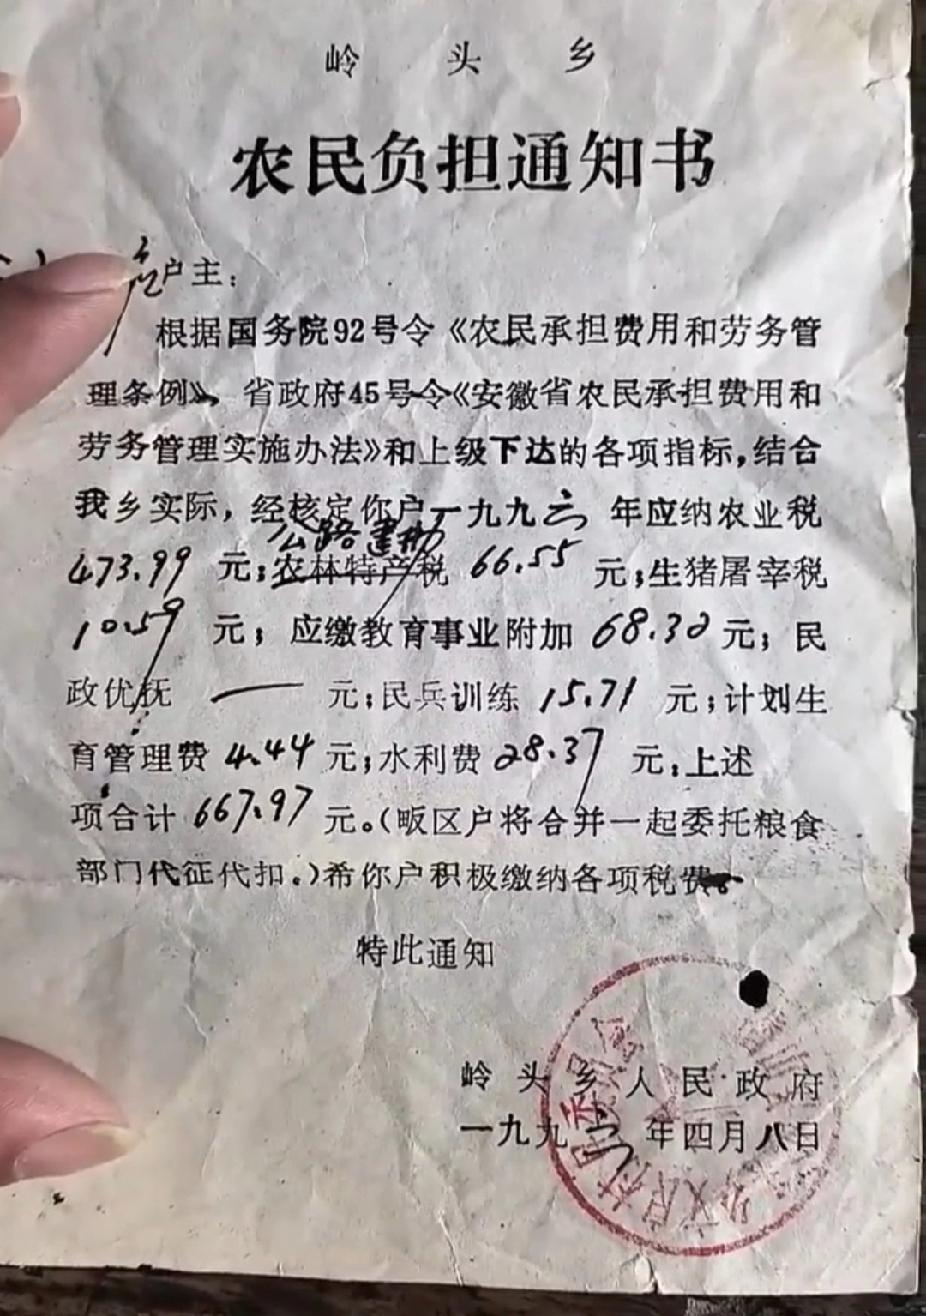 岭头乡
农民负担通知书
户主：
根据国务院92号令《农民承担费用和劳务管
理条例》、省政府45号令《安徽省农民承担费用和
劳务管理实施办法》和上级下达的各项指标，结合
我乡实际，经核定你户一九九六年应纳农业税
公路建勤
473.99元；农林特产税66.55元；生猪屠宰税
10.59元；应缴教育事业附加68.32元；民
政优抚—元；民兵训练15.71元；计划生
育管理费4.44元；水利费28.37元，上述
项合计667.97元。（畈区户将合并一起委托粮食
部门代征代扣．）希你户积极缴纳各项税费。
特此通知
岭头乡人民政府
一九九六年四月八日